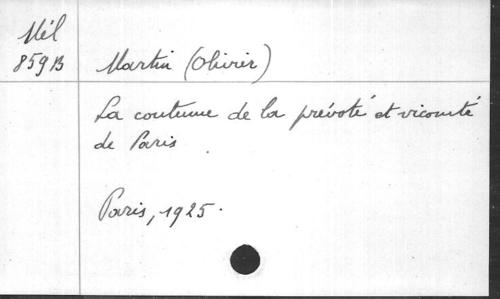 Mél
859B Martin (Olivier)
La coutume de la prévoté et vicomté
de Paris
Paris, 1925.